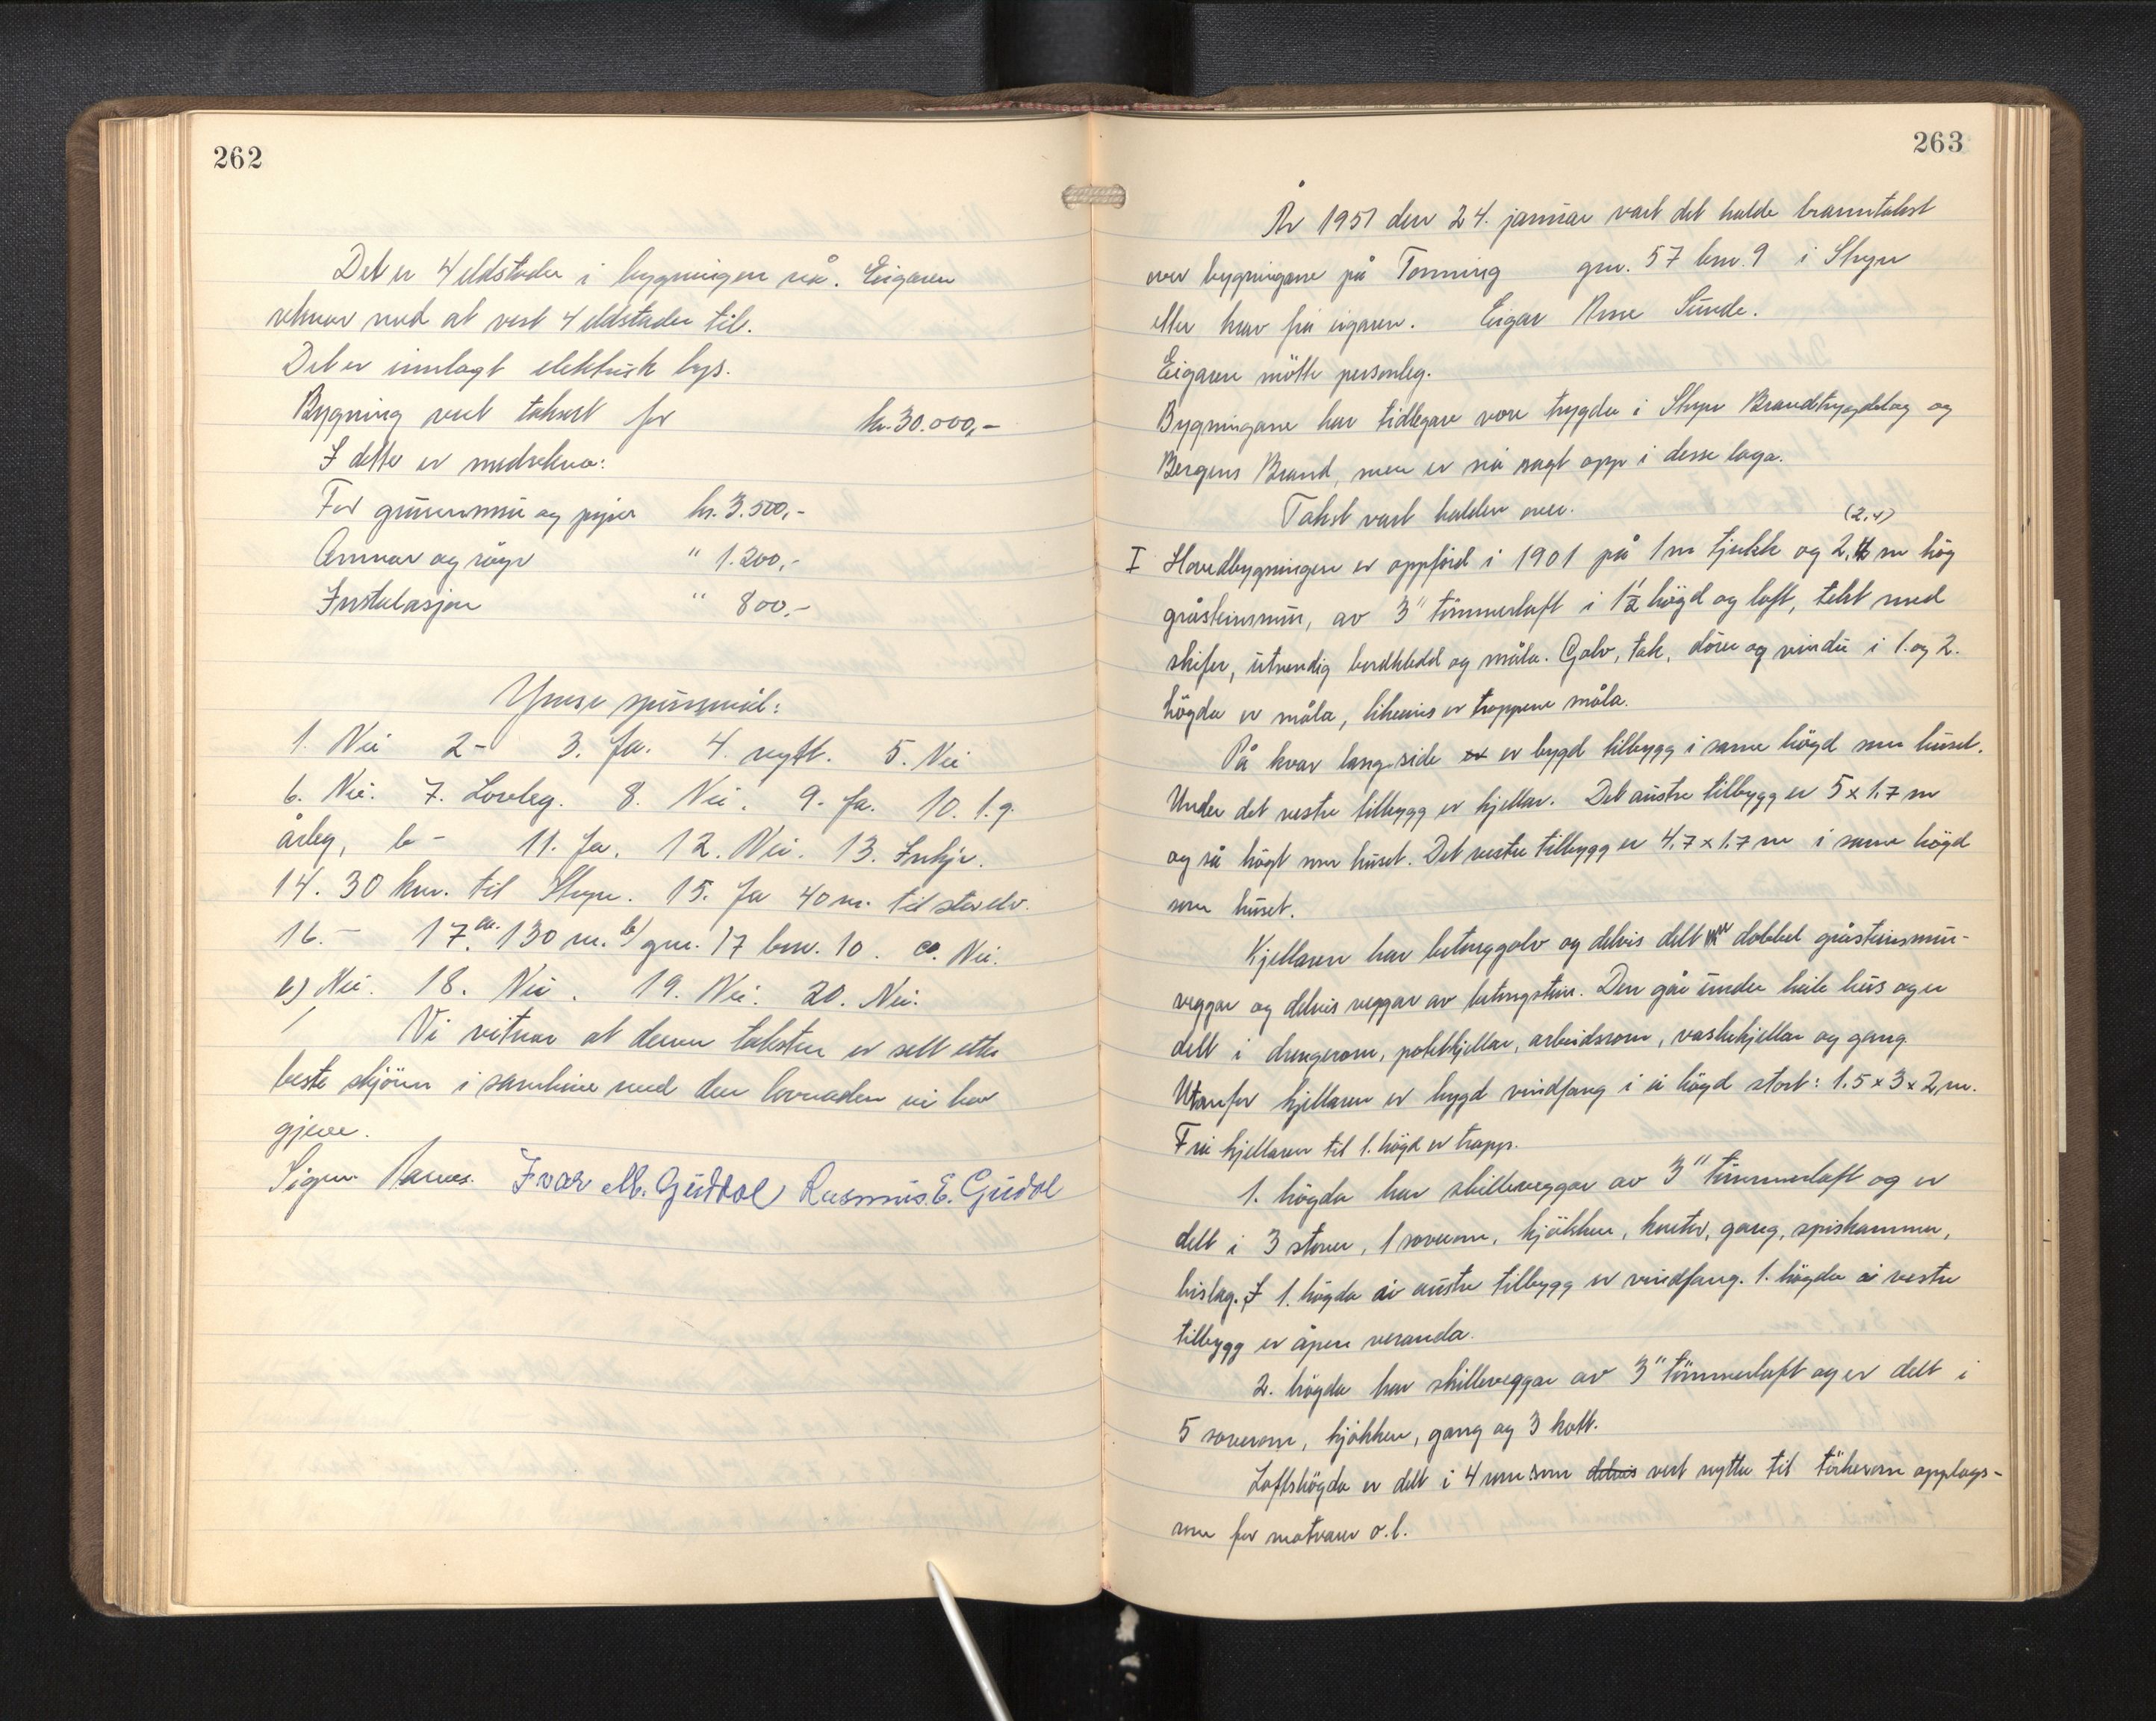 262
Det er 4 eldstader i bygningen nå. Eigaren
reknar med at vert 4 eldstader til.
Det er innlagt elektrisk lys.
Bygning vert taksert for kr. 30.000,-
I dette er medrekna:
For grunnmur og piper kr. 3.500,-
Omnar og røyr " 1.200,-
Instalasjon " 800,-
Ymse spursmål:
1. Nei 2- 3. Ja. 4. nytt. 5. Nei
6. Nei. 7. Loveleg. 8. Nei. 9. Ja. 10. 1.g.
årleg, b- 11. Ja. 12. Nei. 13. Inkje.
14. 30 km. til Stryn. 15. Ja 40 m. til storelv.
16.- 17. a. 130 m. b) gnr. 17 bnr. 10. c. Nei.
e) Nei. 18. Nei. 19. Nei. 20. Nei.
Vi vitnar at denne taksten er sett etter
beste skjönn i samhöve med den lovnaden vi har
gjeve.
Sigm. Ivar M. Guddal Rasmus E. Guddal
263
År 1951 den 24. januar vart det halde branntakst
over bygningane på Tonning gnr. 57 bnr. 9 i Stryn
etter krav frå eigaren. Eigar Arne Sunde.
Eigaren mötte personleg.
Bygningane har tidlegare vore trygda i Stryn Brandtrygdelag og
Bergens Brand, men er nå sagt opp i desse laga.
Takst vart halden over.
(2,4)
I Hovedbygningen er oppförd i 1901 på 1 m tjukk og 2,4 m hög
gråsteinsmur, av 3" tömmerlaft i 1½ högd og loft, tekt med
skifer, utvendig bordkledd og måla. Golv, tak, dörer og vindu i 1. og 2.
högda er måla, likeeins er trappene måla.
På kvar langside er er bygd tilbygg i same högd som huset.
Under det vestre tilbygg er kjellar. Det austre tilbygg er 5 x 1.7 m
og så högt som huset. Det vestre tilbygg er 4.7 x 1.7 m i same högd
som huset.
Kjellaren har betonggolv og delvis delt m dobbel gråsteinsmur-
veggar og delvis veggar av betongstein. Den går under heile hus og er
delt i drengerom, potetkjellar, arbeidsrom, vaskekjellar og gang.
Utanfor kjellaren er bygd vindfang i ei högd stort: 1.5 x 3 x 2 m.
Frå kjellaren til 1. högd er trapp.
1. högda har skilleveggar av 3" tömmerlaft og er
delt i 3 stover, 1 soverom, kjökken, kontor, gang, spiskammer,
bislag. I 1. högda i austre tilbygg er vindfang. 1. högda i vestre
tilbygg er åpen veranda.
2. högda har skilleveggar av 3" tömmerlaft og er delt i
5 soverom, kjökken, gang og 3 kott.
Loftshögda er delt i 4 rom som delvis vert nytta til törkerom opplags-
rom for matvarer o.l.